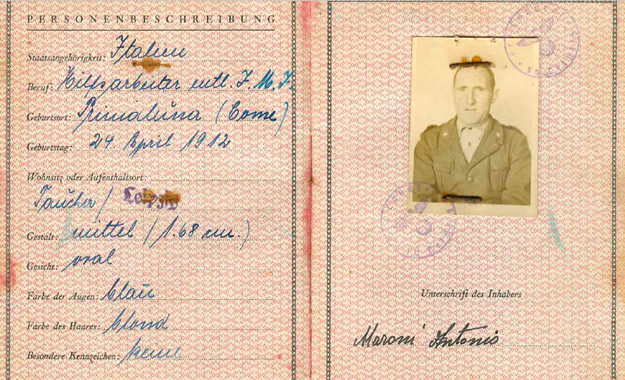 PERSONENBESCHREIBUNG
Staatsangehörigkeit: Italien
Beruf: Hilfsarbeiter entl. I.M.I.
Geburtsort: Primaluna (Come)
Geburtstag: 24 April 1912
Wohnsitz oder Aufenthaltsort:
Taucha / Leipzig
Gestalt: mittel (1.68 cm.)
Gesicht: oval
Farbe der Augen: blau
Farbe des Haares: blond
Besondere Kennzeichen: keine
Unterschrift des Inhabers
Maroni Antonio